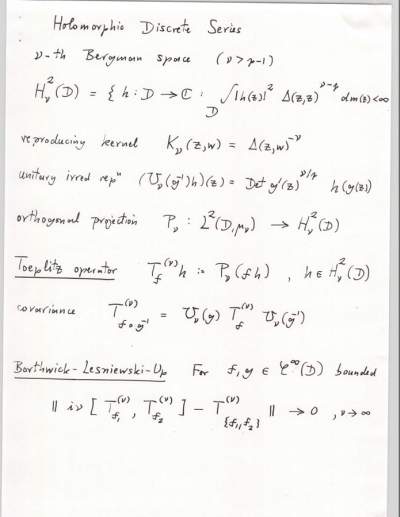 Holomorphic Discrete Series
ν-th Bergman space (ν > p-1)
H²_ν(D) = { h : D → ℂ : ∫_D |h(z)|² Δ(z,z)^{ν-p} dm(z) < ∞
reproducing kernel K_ν(z,w) = Δ(z,w)^{-ν}
unitary irred repⁿ (U_ν(g⁻¹)h)(z) = Det g'(z)^{ν/p} h(g(z))
orthogonal projection P_ν : L²(D,μ_ν) → H²_ν(D)
Toeplitz operator T_f^{(ν)} h := P_ν(f h) , h ∈ H²_ν(D)
covariance T^{(ν)}_{f∘g⁻¹} = U_ν(g) T_f^{(ν)} U_ν(g⁻¹)
Borthwick-Lesniewski-Up For f, g ∈ 𝒞^∞(D) bounded
‖ iν [ T_{f₁}^{(ν)}, T_{f₂}^{(ν)} ] - T^{(ν)}_{{f₁,f₂}} ‖ → 0 , ν → ∞